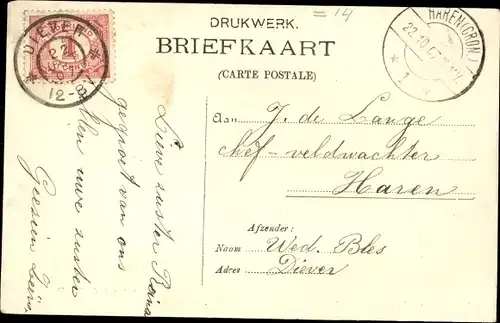 = 14
DRUKWERK.
BRIEFKAART
(CARTE POSTALE)
DIEVER
12-8
HAREN (GRON.)
22.10.07
1
Aan J. de Lange
chef-veldwachter
Haren
Afzender:
Naam Wed. Bles
Adres Diever
Lieve zuster Reina
gegroet van ons
allen uwe zuster
Geesien